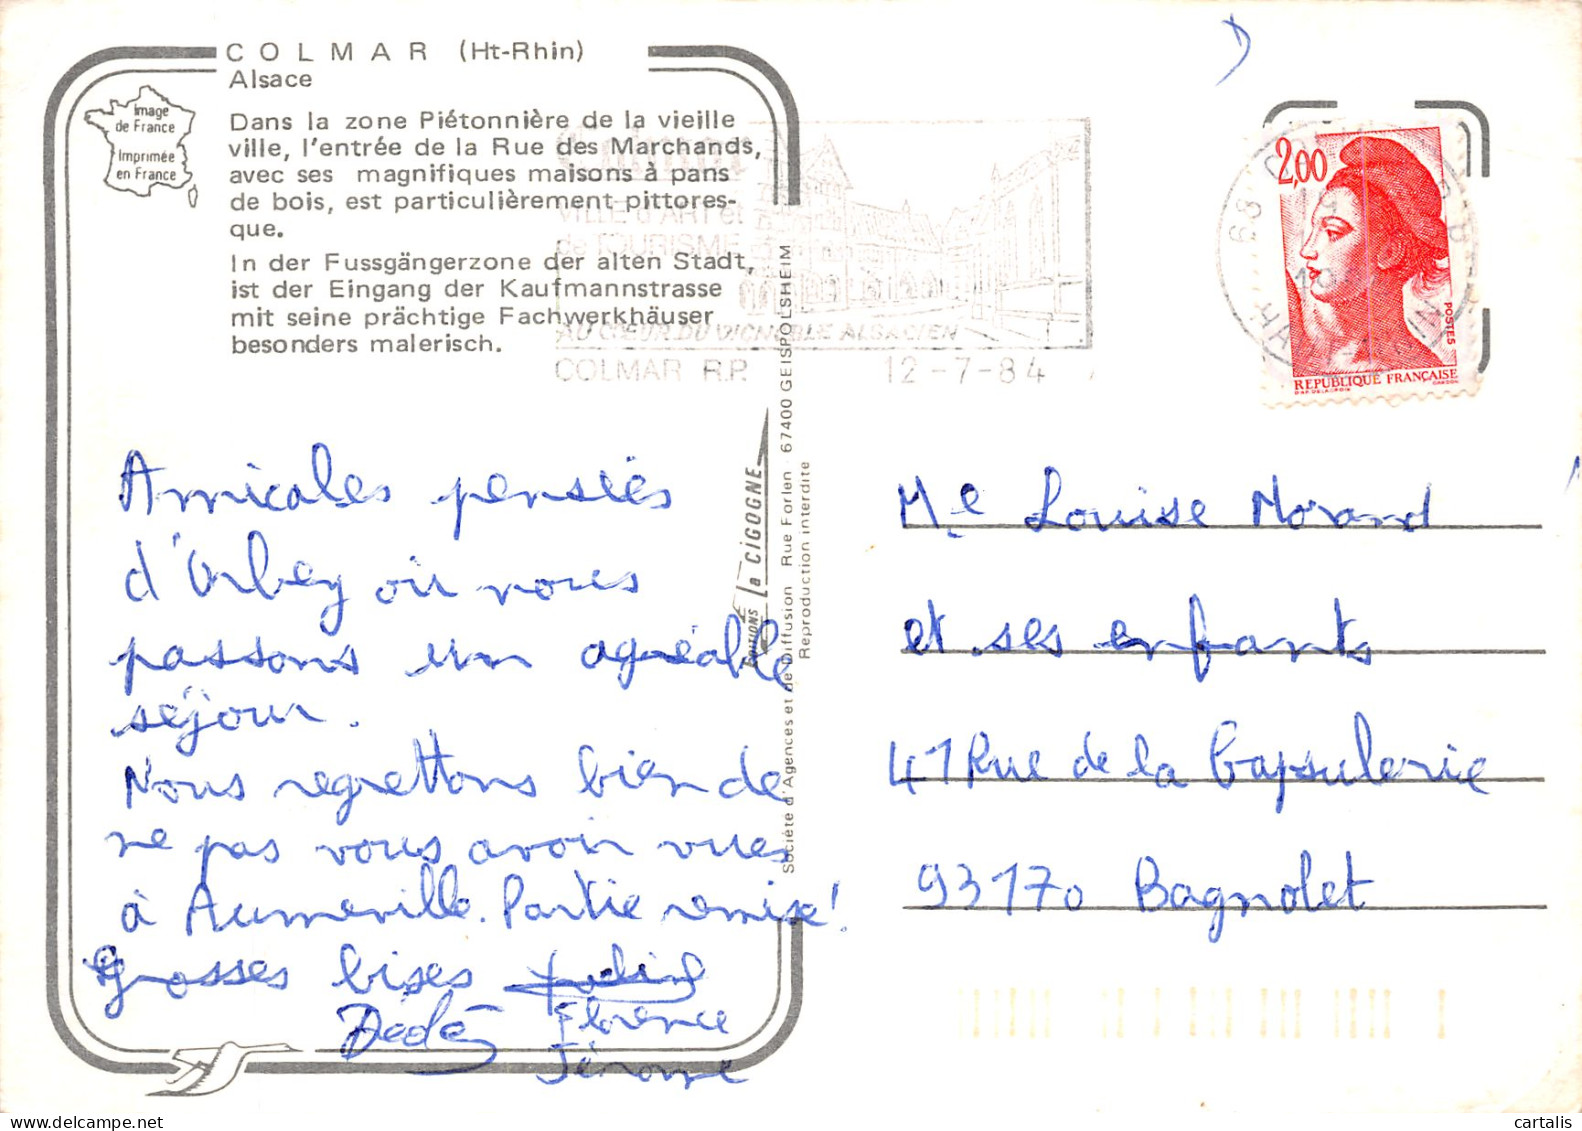 COLMAR (Ht-Rhin)
Alsace
Image
de France
Imprimée
en France
Dans la zone Piétonnière de la vieille
ville, l'entrée de la Rue des Marchands,
avec ses magnifiques maisons à pans
de bois, est particulièrement pittores-
que.
In der Fussgängerzone der alten Stadt,
ist der Eingang der Kaufmannstrasse
mit seine prächtige Fachwerkhäuser
besonders malerisch.
Colmar
VILLE d'ART et
de TOURISME
AU CŒUR DU VIGNOBLE ALSACIEN
COLMAR R.P. 12-7-84
2,00
POSTES
REPUBLIQUE FRANÇAISE
68
HAUT-RHIN
Amicales pensées
d'Orbey où nous
passons un agréable
séjour.
Nous regrettons bien de
ne pas vous avoir vues
à Aumerville. Partie remise!
Grosses bises
Dédé Florence
Jérome
EDITIONS La CIGOGNE
Société d'Agences et de Diffusion Rue Forlen 67400 GEISPOLSHEIM
Reproduction interdite
Me Louise Morand
et ses enfants
41 Rue de la Capsulerie
93170 Bagnolet
cartalis